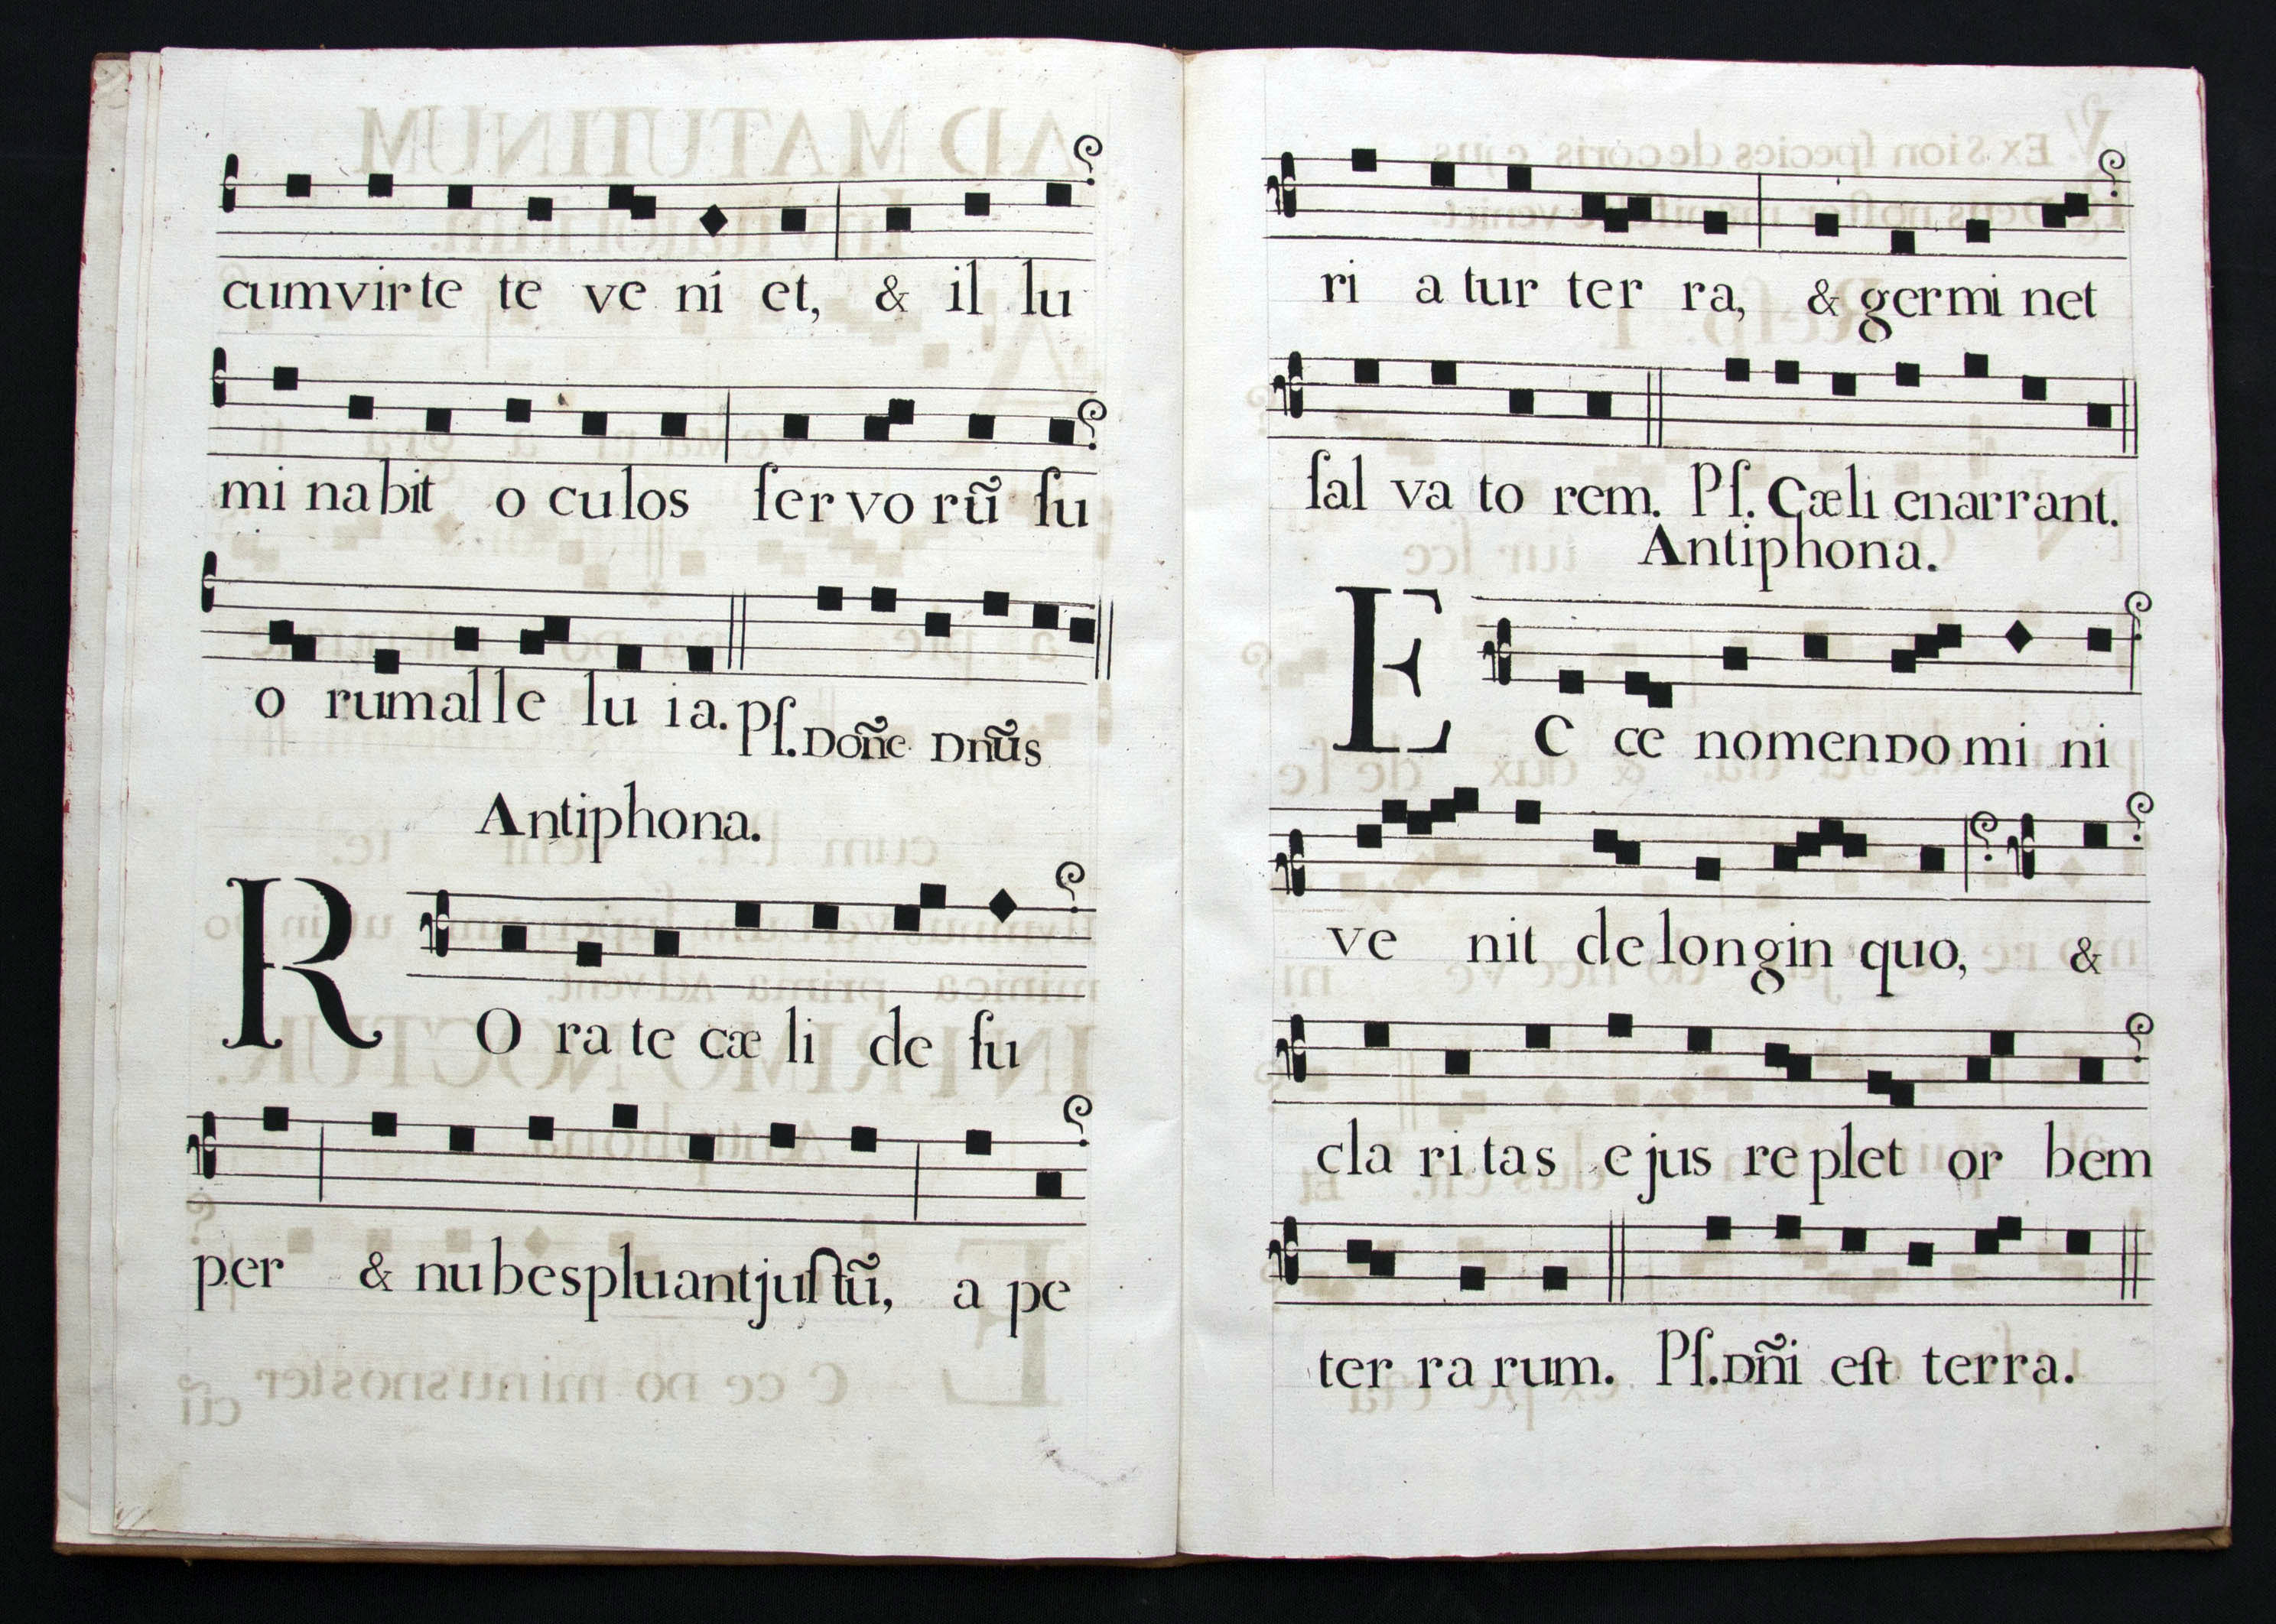 cumvirte te ve ni et, & il lu
mi nabit o culos ſervo rũ ſu
o rumalle lu ia. Pſ. Doñe Dnũs
Antiphona.
RO ra te cæ li de ſu
per & nubespluantjuſtũ, a pe
ri a tur ter ra, & germi net
ſal va to rem. Pſ. Cæli enarrant.
Antiphona.
EC ce nomenDomi ni
ve nit delongin quo, &
cla ri tas ejus replet or bem
ter ra rum. Pſ. Dñi eſt terra.